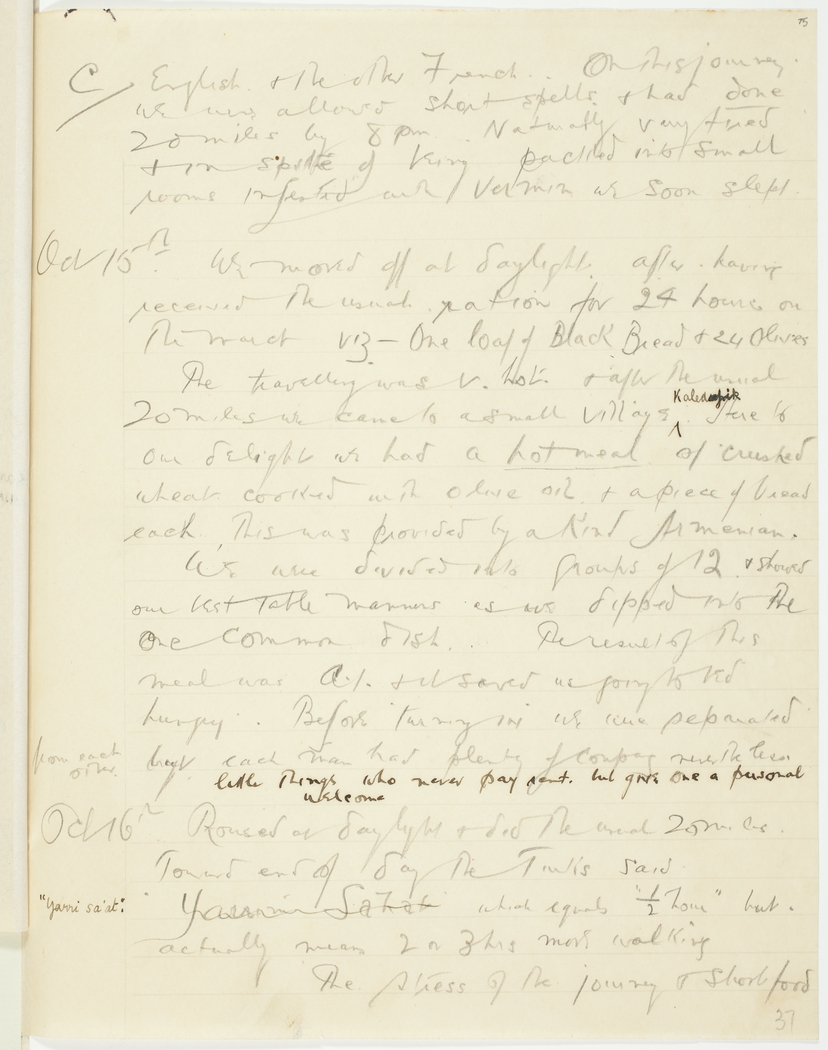 75
C/ English & the other French. On this journey
we were allowed short spells & had done
20 miles by 8 pm. Naturally very tired
& in spite of being packed into small
rooms infested with vermin we soon slept.
Oct 15th. We moved off at daylight after having
received the usual ration for 24 hours on
the march viz — One loaf of Black Bread & 24 Olives
The travelling was v. hot. & after the usual
20 miles we came to a small village. Here to
our delight we had a hot meal of crushed
wheat cooked with olive oil & a piece of bread
each. This was provided by a kind Armenian.
We were devided into groups of 12 & showed
our best table manners as we dipped into the
one common dish. . . The result of this
meal was A.1. & it saved us going to bed
hungry. Before turning in we were separated
from each other. but each man had plenty of company nevertheless
little things who never pay rent. but give one a personal
welcome
Oct 16th Roused at daylight & did the usual 20 miles.
Toward end of day the Turks said
"Yarri sa'at". Sahat which equals "1/2 hour" but
actually means 2 or 3 hrs more walking
The stress of the journey & short food
37